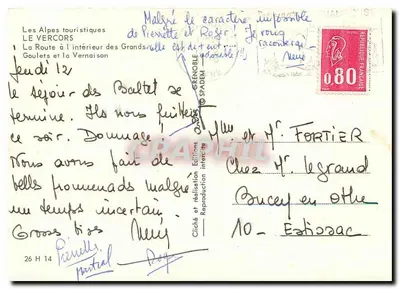 Les Alpes touristiques
LE VERCORS
La Route à l'intérieur des Grands
Goulets et la Vernaison
Malgré le caractère impossible
de Pierrette et Roger! Je vous
raconterai
elle est de + en +
adorable!)
0.80
REPUBLIQUE FRANCAISE
Jeudi 12
le séjour des Baltet se
termine. Ils nous quittent
ce soir. Dommage!
Nous avons fait de
belles promenades malgré
un temps incertain.
Grosses bises
Pierrette
26 H 14
GRENOBLE
© SPADEM
Cliché et réalisation Editions
Reproduction interdite
Mme et Mr FORTIER
Chez Mr Legrand
Bucey en Othe
10 - Estissac